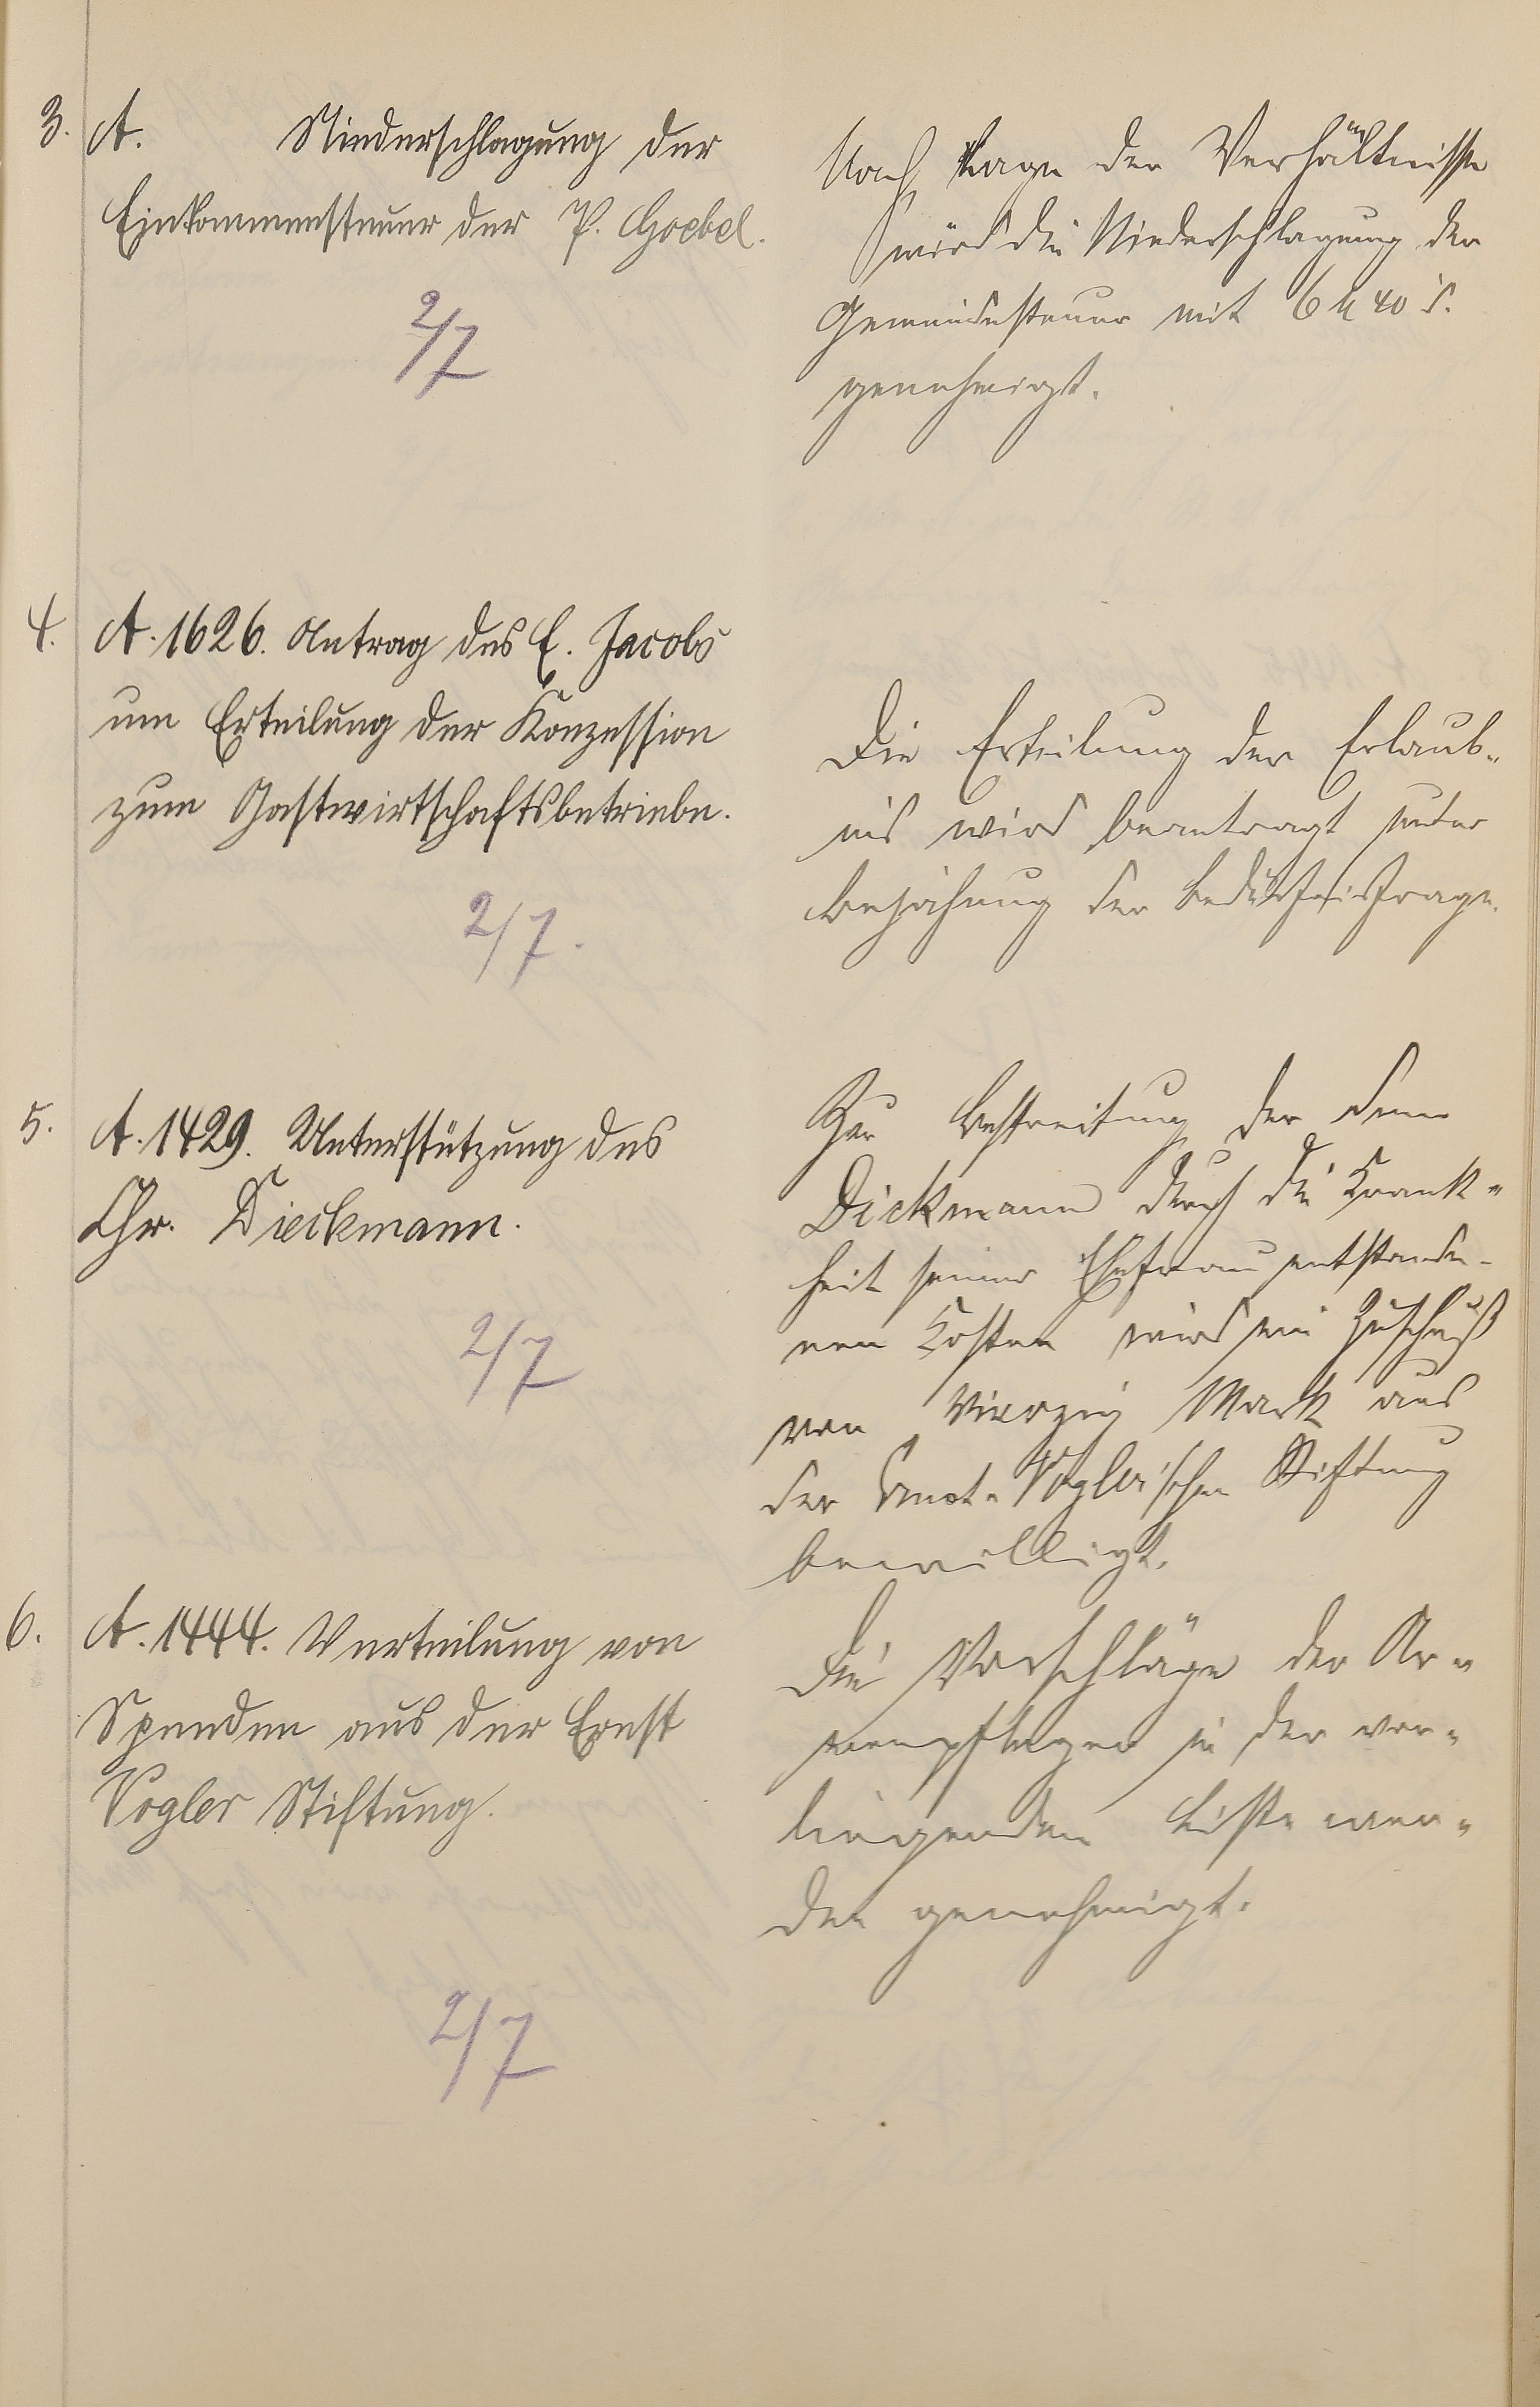 3. A. Niederschlagung der
Einkommensteuer der P. Goebel.
2/7
Nach Lage der Verhältnisse
wird die Niederschlagung der
Gemeindesteuer mit 6 M 40 d.
genehmigt.
4. A. 1626. Antrag des E. Jacobs
um Erteilung der Konzession
zum Gastwirtschaftsbetriebe.
2/7.
Die Erteilung der Erlaub-
nis wird beantragt unter
Bejahung der Bedürfnisfrage.
5. A. 1429. Unterstützung des
Chr. Dieckmann.
2/7
Zur Bestreitung der dem
Dickmann durch die Krank-
heit seiner Ehefrau entstande-
nen Kosten wird ein Zuschuß
von Vierzig Mark aus
der Ernst-Vogler'schen Stiftung
bewilligt.
6. A. 1444. Verteilung von
Spenden aus der Ernst
Vogler Stiftung.
2/7
Die Vorschläge der Ar-
menpfleger in der vor-
liegenden Liste wer-
den genehmigt.